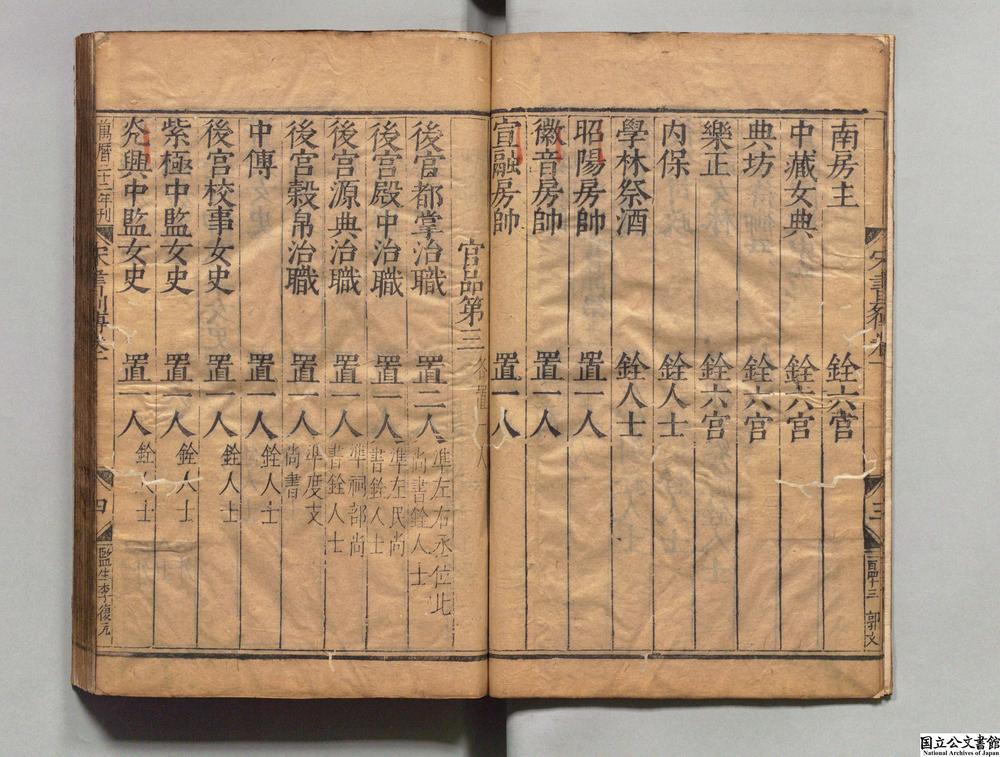 南房主 銓六宮
中藏女典 銓六宮
典坊 銓六宮
樂正 銓六宮
内保 銓人士
學林祭酒 銓人士
昭陽房帥 置一人
徽音房帥 置一人
宣融房帥 置一人
三
一百四十三 郭文
官品第三 各置一人
後宮都掌治職 置二人 準左右丞位比
尚書銓人士
後宮殿中治職 置一人 準左民尚
書銓人士
後宮源典治職 置一人 準祠部尚
書銓人士
後宮穀帛治職 置一人 準度支
尚書
中傳 置一人 銓人士
後宮校事女史 置一人 銓人士
紫極中監女史 置一人 銓人士
光興中監女史 置一人 銓人士
萬曆二十二年刊
宋書列傳卷一
四
監生李復元
国立公文書館
National Archives of Japan